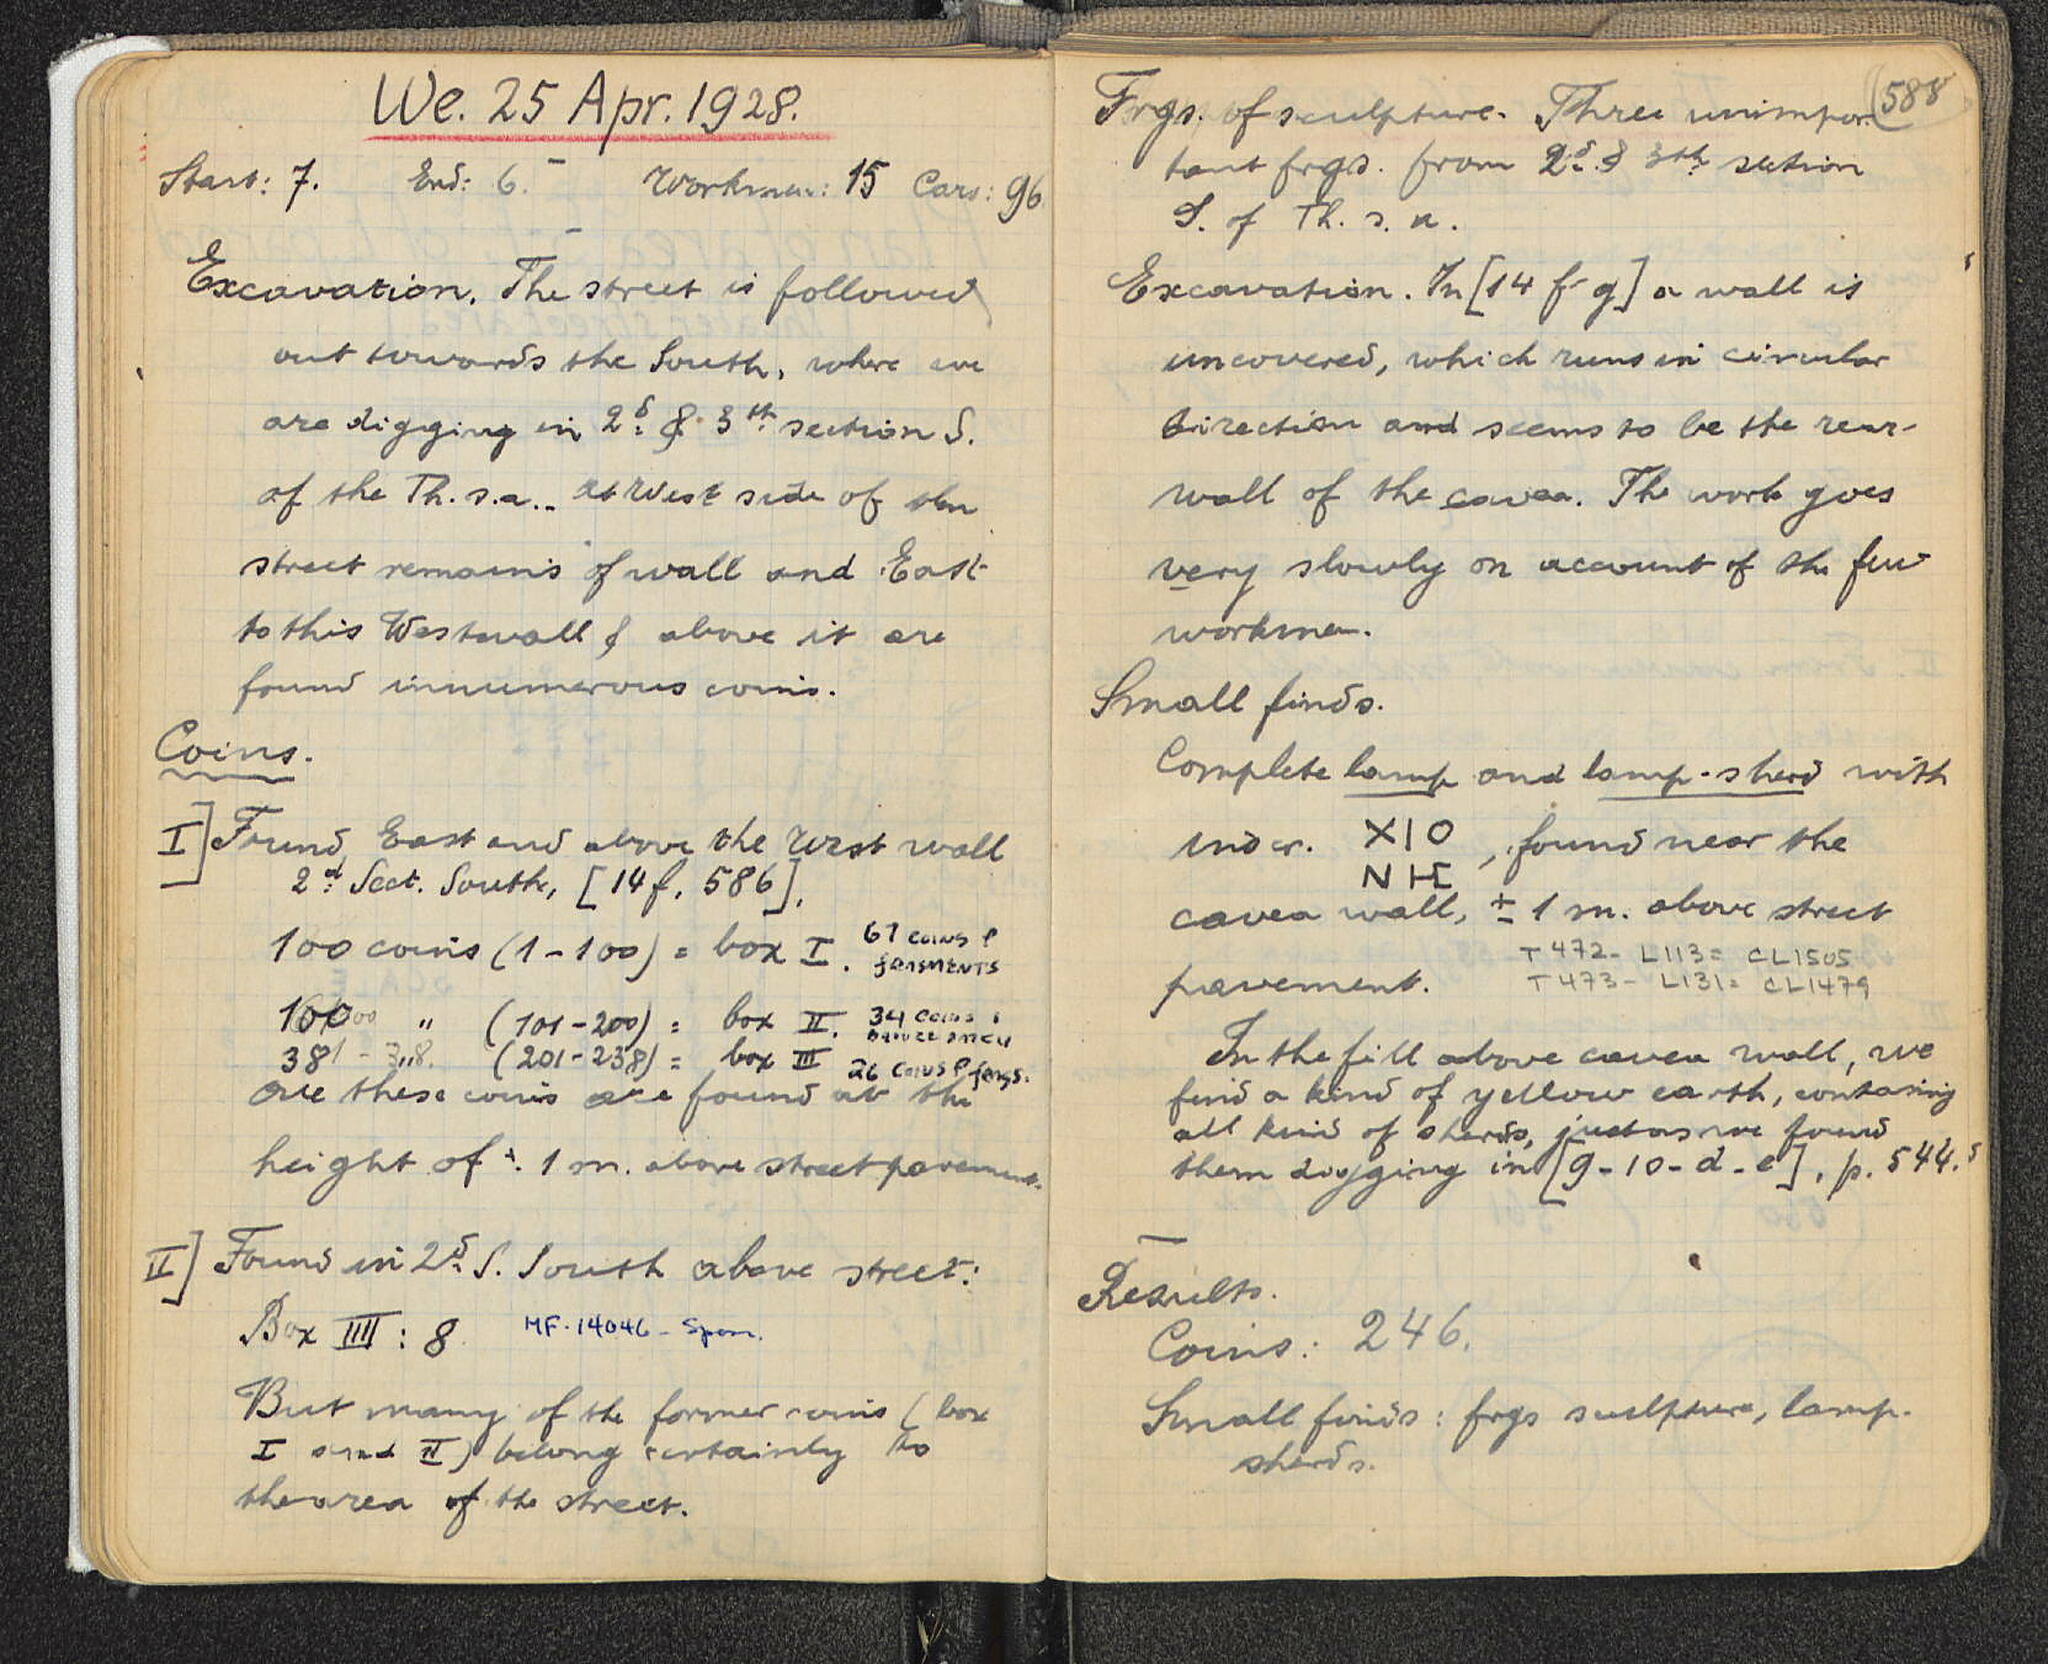 We. 25 Apr. 1928.
Start: 7. End: 6. Workmen: 15 Cars: 96.
Excavation. The street is followed
out towards the South, where we
are digging in 2d & 3th section S.
of the Th. s. a.. At West side of the
street remains of wall and East
to this Westwall & above it are
found innumerous coins.
Coins.
I] Found East and above the West wall
2d Sect. South, [14 f, 586].
100 coins (1-100) = box I. 67 coins &
fragments
100 " (101-200) = box II. 34 coins &
38 " (201-238) = box III 26 coins & frags.
All these coins are found at the
height of ± 1 m. above street pavement.
II] Found in 2d S. South above street:
Box IIII: 8 MF-14046-Spoon.
But many of the former coins (box
I and II) belong certainly to
the area of the street.
588
Frgs. of sculpture. Three unimpor-
tant frgs. from 2d & 3th section
S. of Th. s. a.
Excavation. In [14 f-g] a wall is
uncovered, which runs in circular
direction and seems to be the rear-
wall of the cavea. The work goes
very slowly on account of the few
workmen.
Small finds.
Complete lamp and lamp-sherd with
inscr. XIO
NHC, found near the
cavea wall, ± 1 m. above street
T 472 - L113 = CL1505
pavement. T 473 - L131 = CL1479
In the fill above cavea wall, we
find a kind of yellow earth, containing
all kind of sherds, just as we found
them digging in [9-10-d-e], p. 544.
Results.
Coins: 246.
Small finds: frgs sculpture, lamp-
sherds.